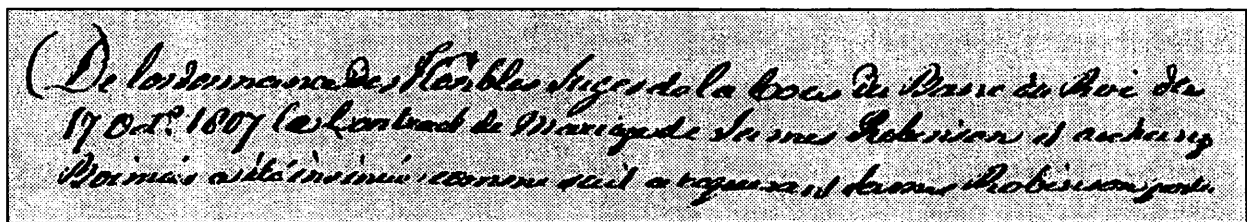 De l'ordonnance Des Honbles Juges de la Cour Du Banc du Roi du
17 Oct.e 1807 Le Contract de Mariage de James Robinson et
a été insinué comme suit a requerant James Robinson